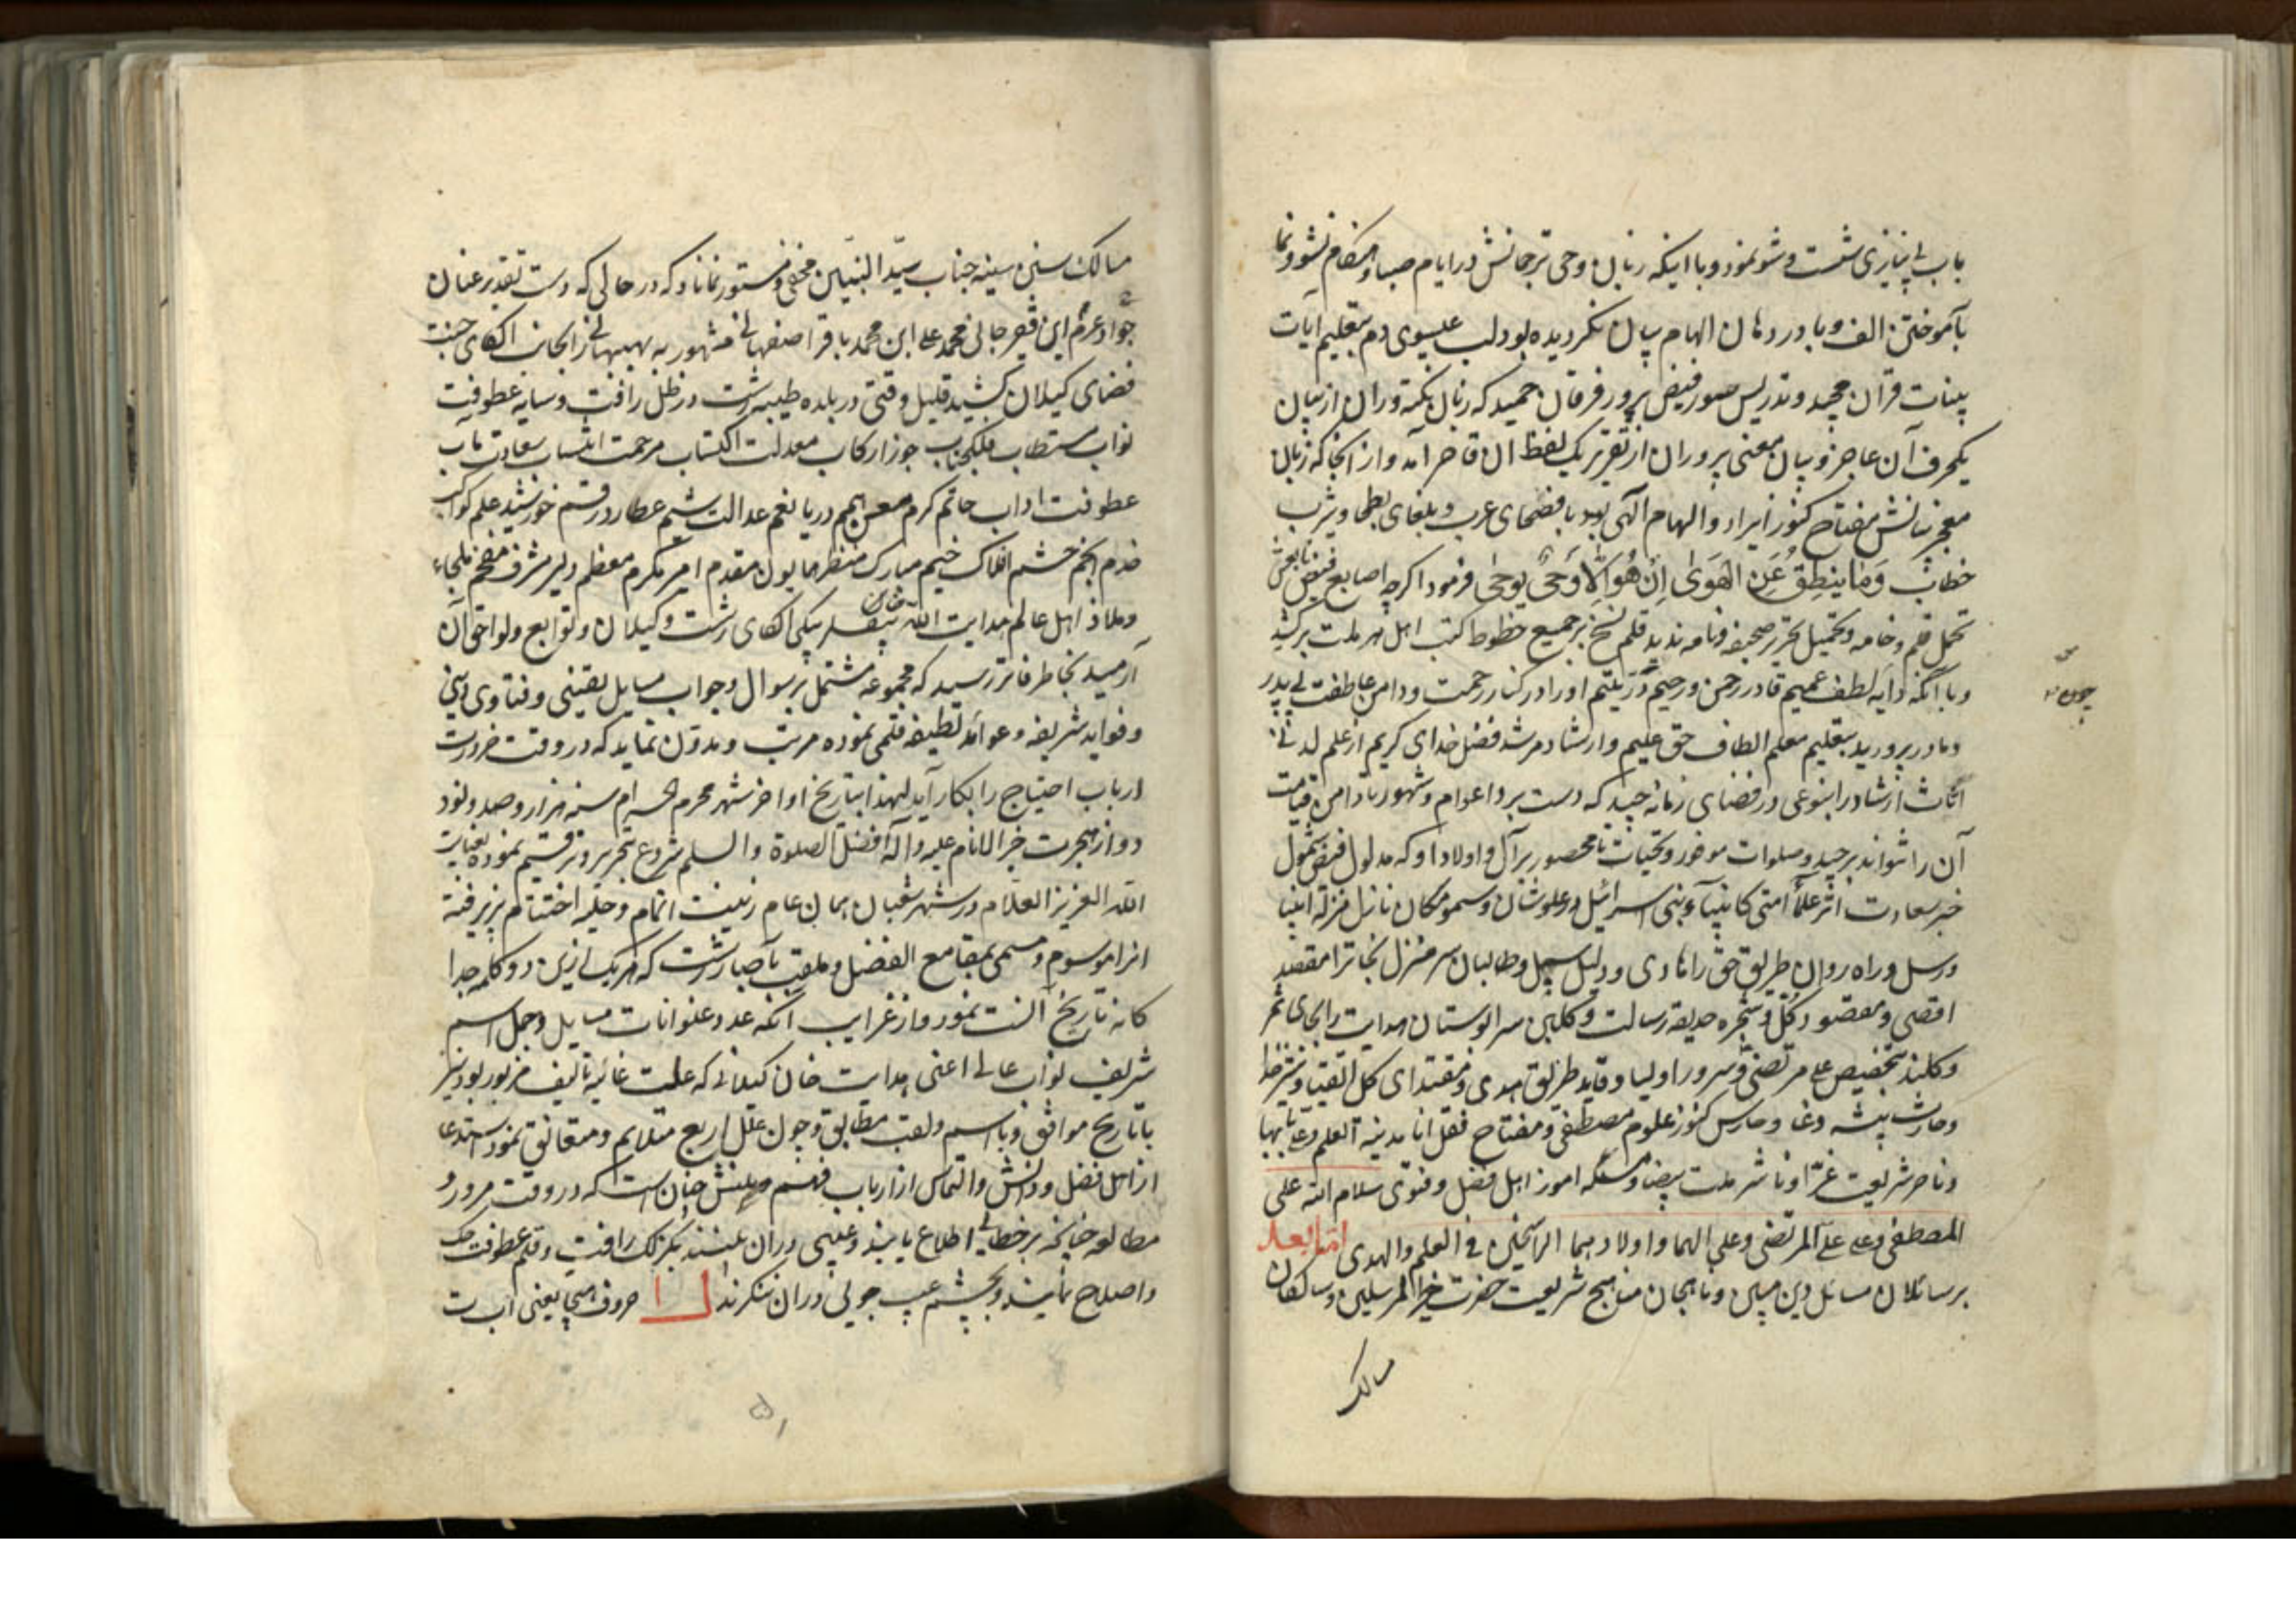 باب بی نیازی شست و شو نمود و با اینکه زبان وحی ترجمانش در ایام صبا و هنگام نشو و نما
بآموختن الف و با در دهان الهام بیان نگردیده بود لب عیسوی دم بتعلیم آیات
بینات قرآن مجید و تدریس سور فیض پرور فرقان حمید که زبان نکته وران از بیان
یکحرف آن عاجز و بیان معنی پروران از تقریر یک لفظ آن قاصر آمد و از آنجا که زبان
معجز بیانش مفتاح کنوز ایراد و الهام آلهی بود با فصحای عرب و بلغای بطحا و یثرب
خطاب وَمَا يَنطِقُ عَنِ الْهَوَىٰ إِنْ هُوَ إِلَّا وَحْيٌ يُوحَىٰ فرمود اگرچه اصابع فیض
تحمل قلم و خامه و تکمیل تحریر صحیفه و نامه ندید قلم نسخ بر جمیع خطوط کتب اهل هر ملت برکشید
چون
و با آنکه دایه لطف عمیم قادر رحمن و رحیم دُرّ یتیم او را در کنار رحمت و دامن عاطفت بی پدر
و مادر پرورید بتعلیم معلم الطاف حق علیم و ارشاد مرشد فضل خدای کریم از علم لدنی
اثاث ارشاد را بنوعی در فضای زمانه چید که دست برد اعوام و شهور تا دامن قیامت
آن را نتواند برچید و صلوات موفور و تحیات نامحصور بر آل و اولاد او که مدلول فیض شمول
خبر سعادت اثر علمآء امتی کانبیآء بنی اسرائیل در علو شان و سمو مکان نازل منزله انبیا
و رسل و راه روان طریق حق را هادی و دلیل سبل و طالبان سر منزل نجات را مقصد
اقصی و مقصود کل و شجره حدیقه رسالت و گلبن سرابوستان هدایت را بجای ثمر
و گلند بتخصیص علی مرتضی و سرور اولیا و قاید طریق هدی و مقتدای کل اتقیا و
و حارث بیشه وغا و حارس کنوز علوم مصطفی و مفتاح قفل انا مدینة العلم و علی بابها
و ناصر شریعت غرّا و ناشر ملت بیضا و امور اهل فضل و فتوی سلام الله علی
المصطفی و علی علی المرتضی و علی الهما و اولادهما الراسخین فی العلم و الهدی اما بعد
بر سائلان مسائل دین مبین و ناهجان مناهج شریعت حضرت خیر المرسلین و سالکان
مسالک
مسالک سنن سنیه جناب سیّد النبیّین مخفی و مستور نماناد که در حالی که دست تقدیر عنان
جواد عزم این فقیر جانی محمد علی ابن محمد باقر اصفهانی مشهور به بهبهانی را بجانب الکای جنت
فضای گیلان کشید قلیل وقتی در بلده طیبه رشت در ظل رافت و سایه عطوفت
نواب مستطاب فلکجناب جوزا رکاب معدلت اکتساب مرحمت انتساب سعادت مآب
عطوفت اداب حاتم کرم دریا نعم عدالت شیم عطارد رقم خورشید علم کواکب
خدم انجم حشم افلاک خیم مبارک منظر همایون مقدم امیر مکرم معظم دلیر مشرف مفخم ملجاء
و ملاذ اهل عالم هدایت الله خان بیگلر بیگی الکای رشت و گیلان و توابع و لواحق آن
آرمید بخاطر فاتر رسید که مجموعه مشتمل بر سوال و جواب مسایل یقینی و فتاوی دینی
و فواید شریفه و عوائد لطیفه قلمی نموده مرتب و مدون نماید که در وقت ضرورت
ارباب احتیاج را بکار آید لهذا بتاریخ اواخر شهر محرم الحرام سنه هزار و صد و نود
دو از هجرت خیر الانام علیه و آله افضل الصلوة و السلم شروع بتحریر و ترقیم نموده بعنایت
الله العزیز العلام در شهر شعبان همان عام زینت اتمام و حلیه اختتام پذیرفته
انرا موسوم و مسمی بمقامع الفضل و ملقب رشت که هر یک ازین دو کلمه جدا
کانه تاریخ آنست نمود و از غرایب آنکه عدد عنوانات مسایل و جمل اسم
شریف نواب عالی اعنی هدایت خان گیلانی که علت غائیه تالیف مزبور بود نیز
با تاریخ موافق و با اسم و لقب مطابق و چون علل اربع متلایم و متعانق نمود استدعا
از اهل فضل و دانش و التماس از ارباب فهم و بینش چنان است که در وقت مرور و
مطالعه چنانچه بر خطائی اطلاع یابند و عیبی در ان بینند بکزلک رافت و قلم عطوفت حک
و اصلاح نمایند و بچشم عیب جوئی در ان ننگرند حروف تهجی یعنی اب ت